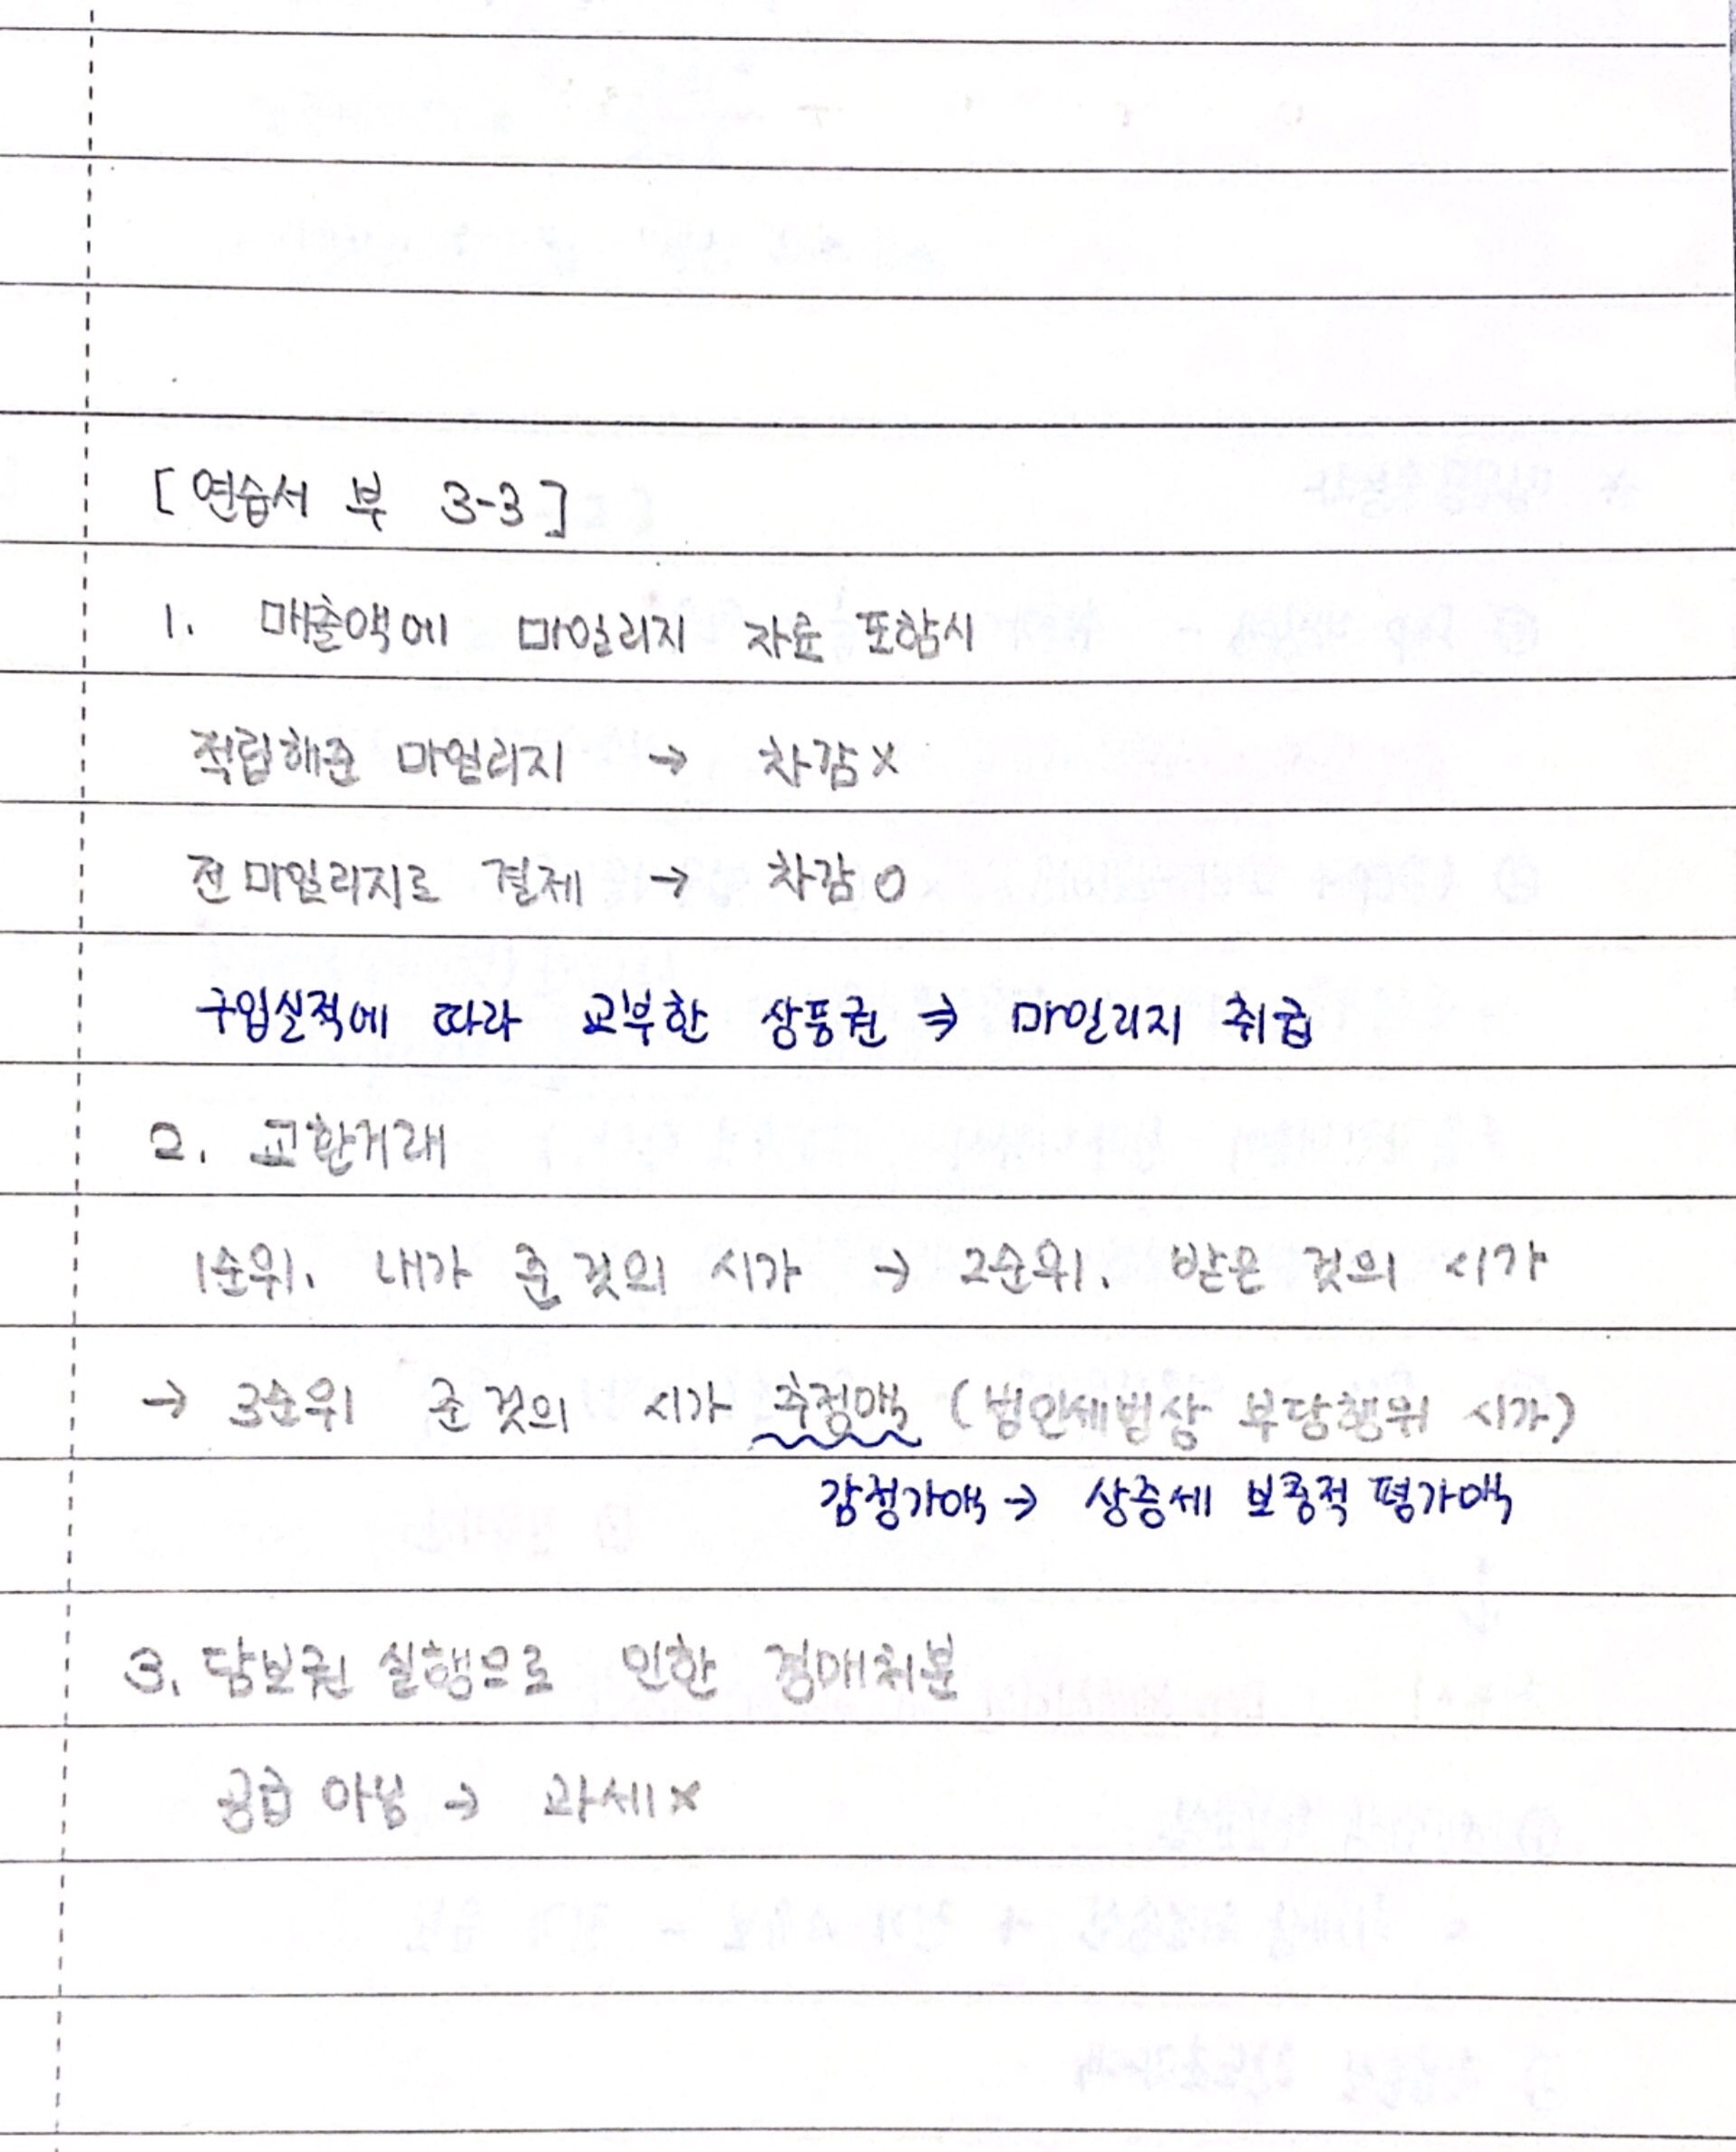 [연습서 부 3-3]
1. 매출액에 마일리지 자료 포함시
적립해준 마일리지 → 차감×
전 마일리지로 결제 → 차감○
구입실적에 따라 교부한 상품권 ⇒ 마일리지 취급
2. 교환거래
1순위. 내가 준 것의 시가 → 2순위. 받은 것의 시가
→ 3순위 준 것의 시가 추정액 (법인세법상 부당행위 시가)
감정가액 → 상증세 보충적 평가액
3. 담보권 실행으로 인한 경매처분
공급 아님 → 과세×